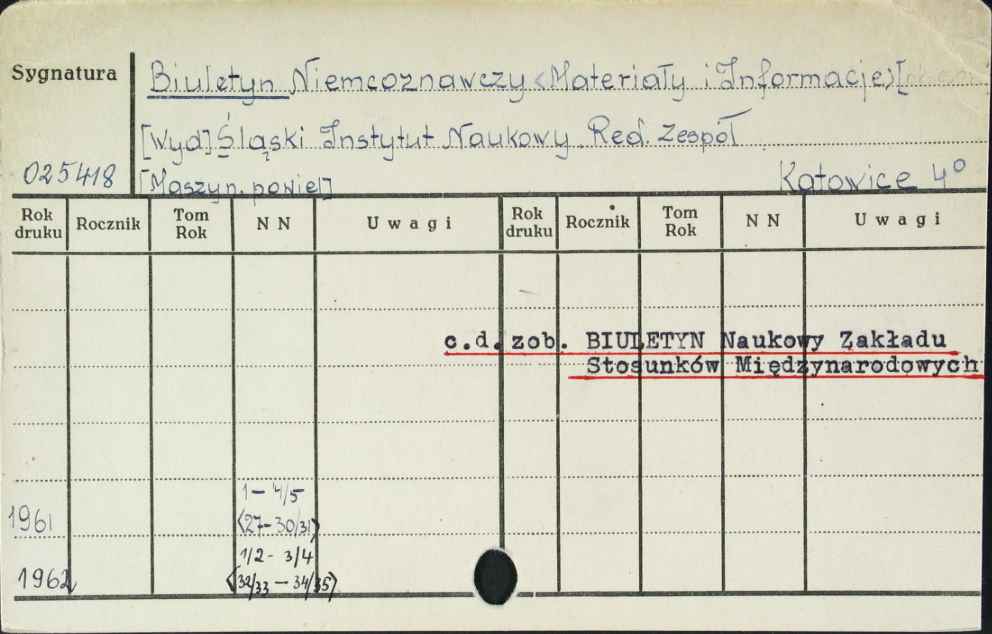 Sygnatura
Biuletyn Niemcoznawczy <Materiały i Informacje> [
[Wyd] Śląski Instytut Naukowy. Red. Zespół
025418
[Maszyn. powiel] Katowice 4°
Rok druku Rocznik Tom Rok N N Uwagi Rok druku Rocznik Tom Rok N N Uwagi
c.d. zob. BIULETYN Naukowy Zakładu
Stosunków Międzynarodowych
1 – 4/5
1961 <27–30/31>
1/2 – 3/4
1962 <32/33 – 34/35>